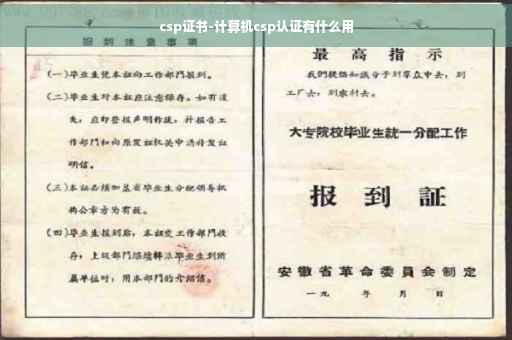 csp证书-计算机csp认证有什么用
报到注意事项
(一)毕业生凭本证向工作部门报到。
(二)毕业生对本证应注意保存。如有遗
失，应即登报声明作废，并报告工
作部门和向原发证机关申请补发证
明信。
(三)本证必须加盖省毕业生分配领导机
构公章方为有效。
(四)毕业生报到后，本证交工作部门收
存；上级部门继续转派毕业生到所
属单位时，用本部门的介绍信。
最高指示
我们提倡知识分子到群众中去，到
工厂去，到农村去。
大专院校毕业生統一分配工作
报到証
安徽省革命委員会制定
一九 年 月 日